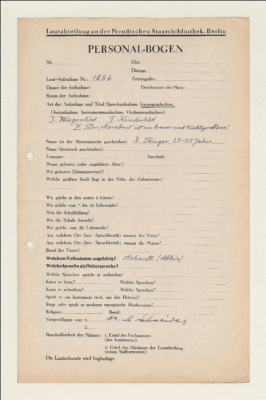 Lautabteilung an der Preußischen Staatsbibliothek, Berlin
PERSONAL-BOGEN
Nr. Ort:
Datum:
Laut-Aufnahme Nr.: 1886 Zeitangabe:
Dauer der Aufnahme: Durchmesser der Platte:
Raum der Aufnahme:
Art der Aufnahme und Titel (Sprechaufnahme, Gesangsaufnahme,
Choraufnahme, Instrumentenaufnahme, Orchesteraufnahme):
I. Wiegenlied II. Kinderlied
Name (in der Muttersprache geschrieben):
Name (lateinisch geschrieben):
Vorname: Anschrift:
Wann geboren (oder ungefähres Alter)?
Wo geboren (Heimatprovinz)?
Welche größere Stadt liegt in der Nähe des Geburtsortes:
Wo gelebt in den ersten 6 Jahren?
Wo gelebt vom 7. bis 20. Lebensjahr?
Was für Schulbildung?
Wo die Schule besucht?
Wo gelebt vom 20. Lebensjahr?
Aus welchem Ort (bzw. Sprachbezirk) stammt der Vater?
Aus welchem Ort (bzw. Sprachbezirk) stammt die Mutter?
Beruf des Vaters?
Welchem Volksstamm angehörig?
Welche Sprache als Muttersprache?
Welche Sprachen spricht er außerdem?
Kann er lesen? Welche Sprachen?
Kann er schreiben? Welche Sprachen?
Spielt er ein Instrument (evtl. aus der Heimat)?
Singt oder spielt er moderne europäische Musikweisen?
Religion: Beruf:
Vorgeschlagen von: 1.
2.
Beschaffenheit der Stimme: 1. Urteil des Fachmannes
(des Assistenten):
2. Urteil des Direktors der Lautabteilung
(seines Stellvertreters):
Die Lauturkunde wird beglaubigt: